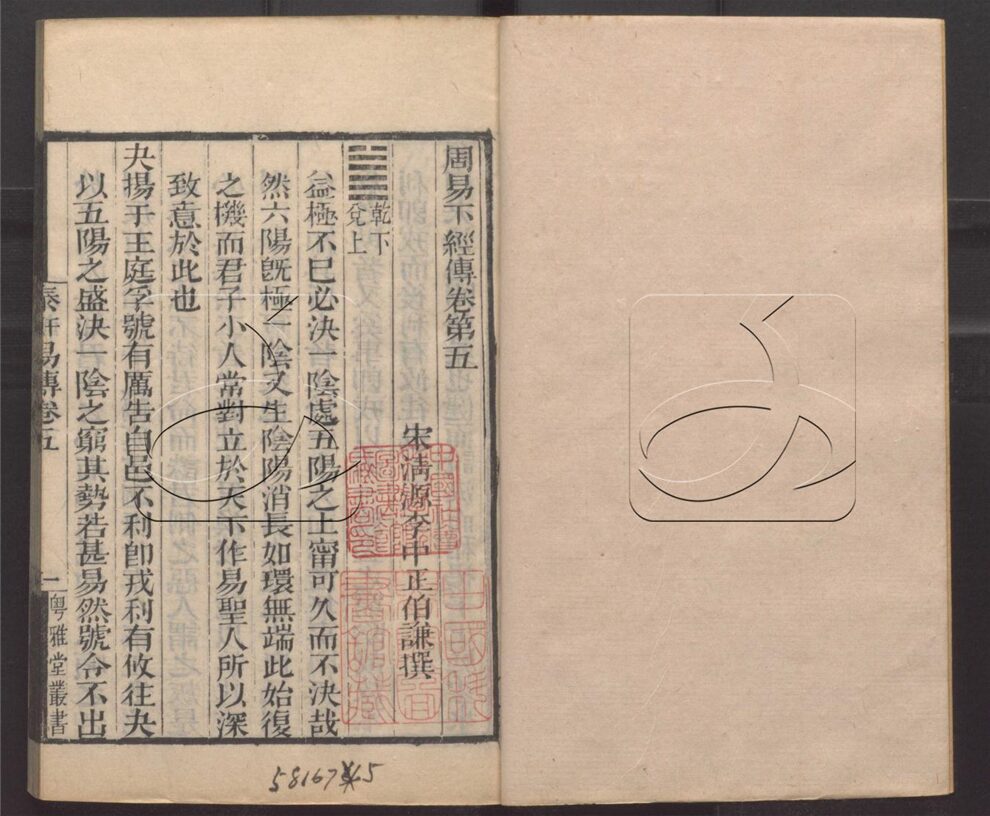 周易下經傳卷第五
宋清源李中正伯謙撰
䷪乾下兌上
益極不已必決一陰處五陽之上甯可久而不決哉
然六陽旣極一陰又生陰陽消長如環無端此始復
之機而君子小人常對立於天下作易聖人所以深
致意於此也
夬揚于王庭孚號有厲告自邑不利卽戎利有攸往夬
以五陽之盛決一陰之窮其勢若甚易然號令不出
泰軒易傳卷五
一
粵雅堂叢書
58167 65